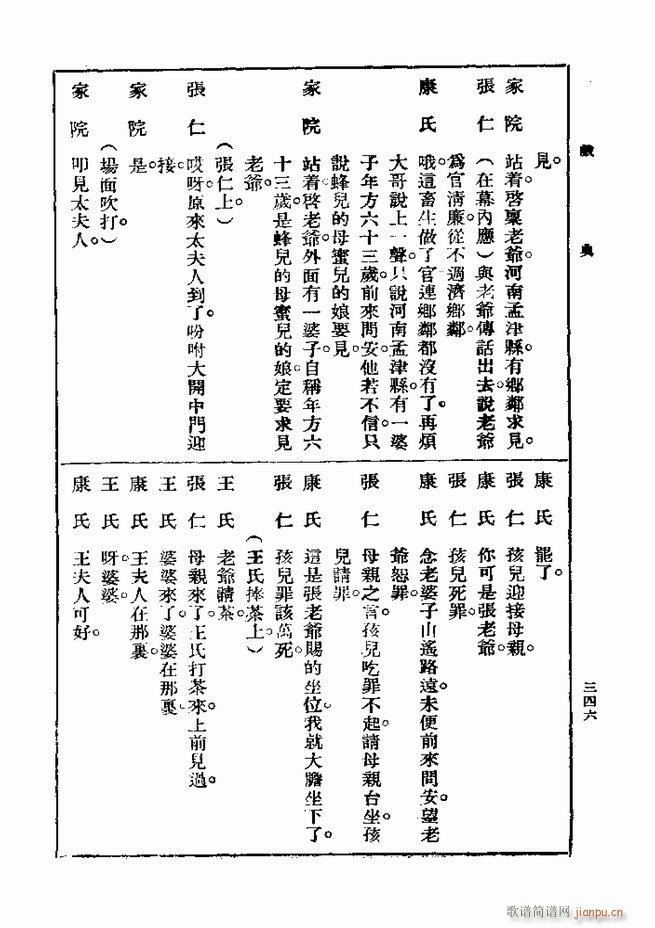 戲典
三四六
見。
家院 站着。啓稟老爺。河南孟津縣。有鄉鄰求見。
張仁 （在幕內應）與老爺傳話出去。說老爺
爲官淸廉。從不週濟鄉鄰。
康氏 哦。這畜生做了官。連鄉鄰都沒有了。再煩
大哥說上一聲。只說河南孟津縣。有一婆
子年方六十三歲。前來問安。他若不信。只
說蜂兒的母。蜜兒的娘要見。
家院 站着。啓老爺。外面有一婆子。自稱年方六
十三歲。是蜂兒的母。蜜兒的娘。定要求見
老爺。
（張仁上）
張仁 哎呀。原來太夫人到了。吩咐大開中門迎
接。
家院 是。
（場面吹打）
家院 叩見太夫人。
康氏 罷了。
張仁 孩兒迎接母親。
康氏 你可是張老爺。
張仁 孩兒死罪。
康氏 念老婆子山遙路遠。未便前來問安。望老
爺恕罪。
張仁 母親之言。孩兒吃罪不起。請母親台坐。孩
兒請罪。
康氏 這是張老爺賜的坐位。我就大膽坐下了。
張仁 孩兒罪該萬死。
（王氏捧茶上）
王氏 老爺請茶。
張仁 母親來了。王氏打茶來。上前見過。
王氏 婆婆來了。婆婆在那裏。
康氏 王夫人在那裏。
王氏 呀。婆婆。
康氏 王夫人可好。
歌谱简谱网 jianpu.cn